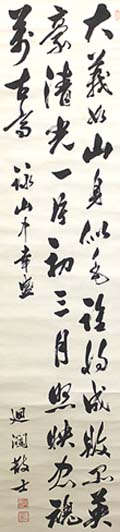 大義如山身似毛誰將成敗品英
豪清光一片初三月照映忠魂
萬古高　詠山中幸盛
迴瀾散士